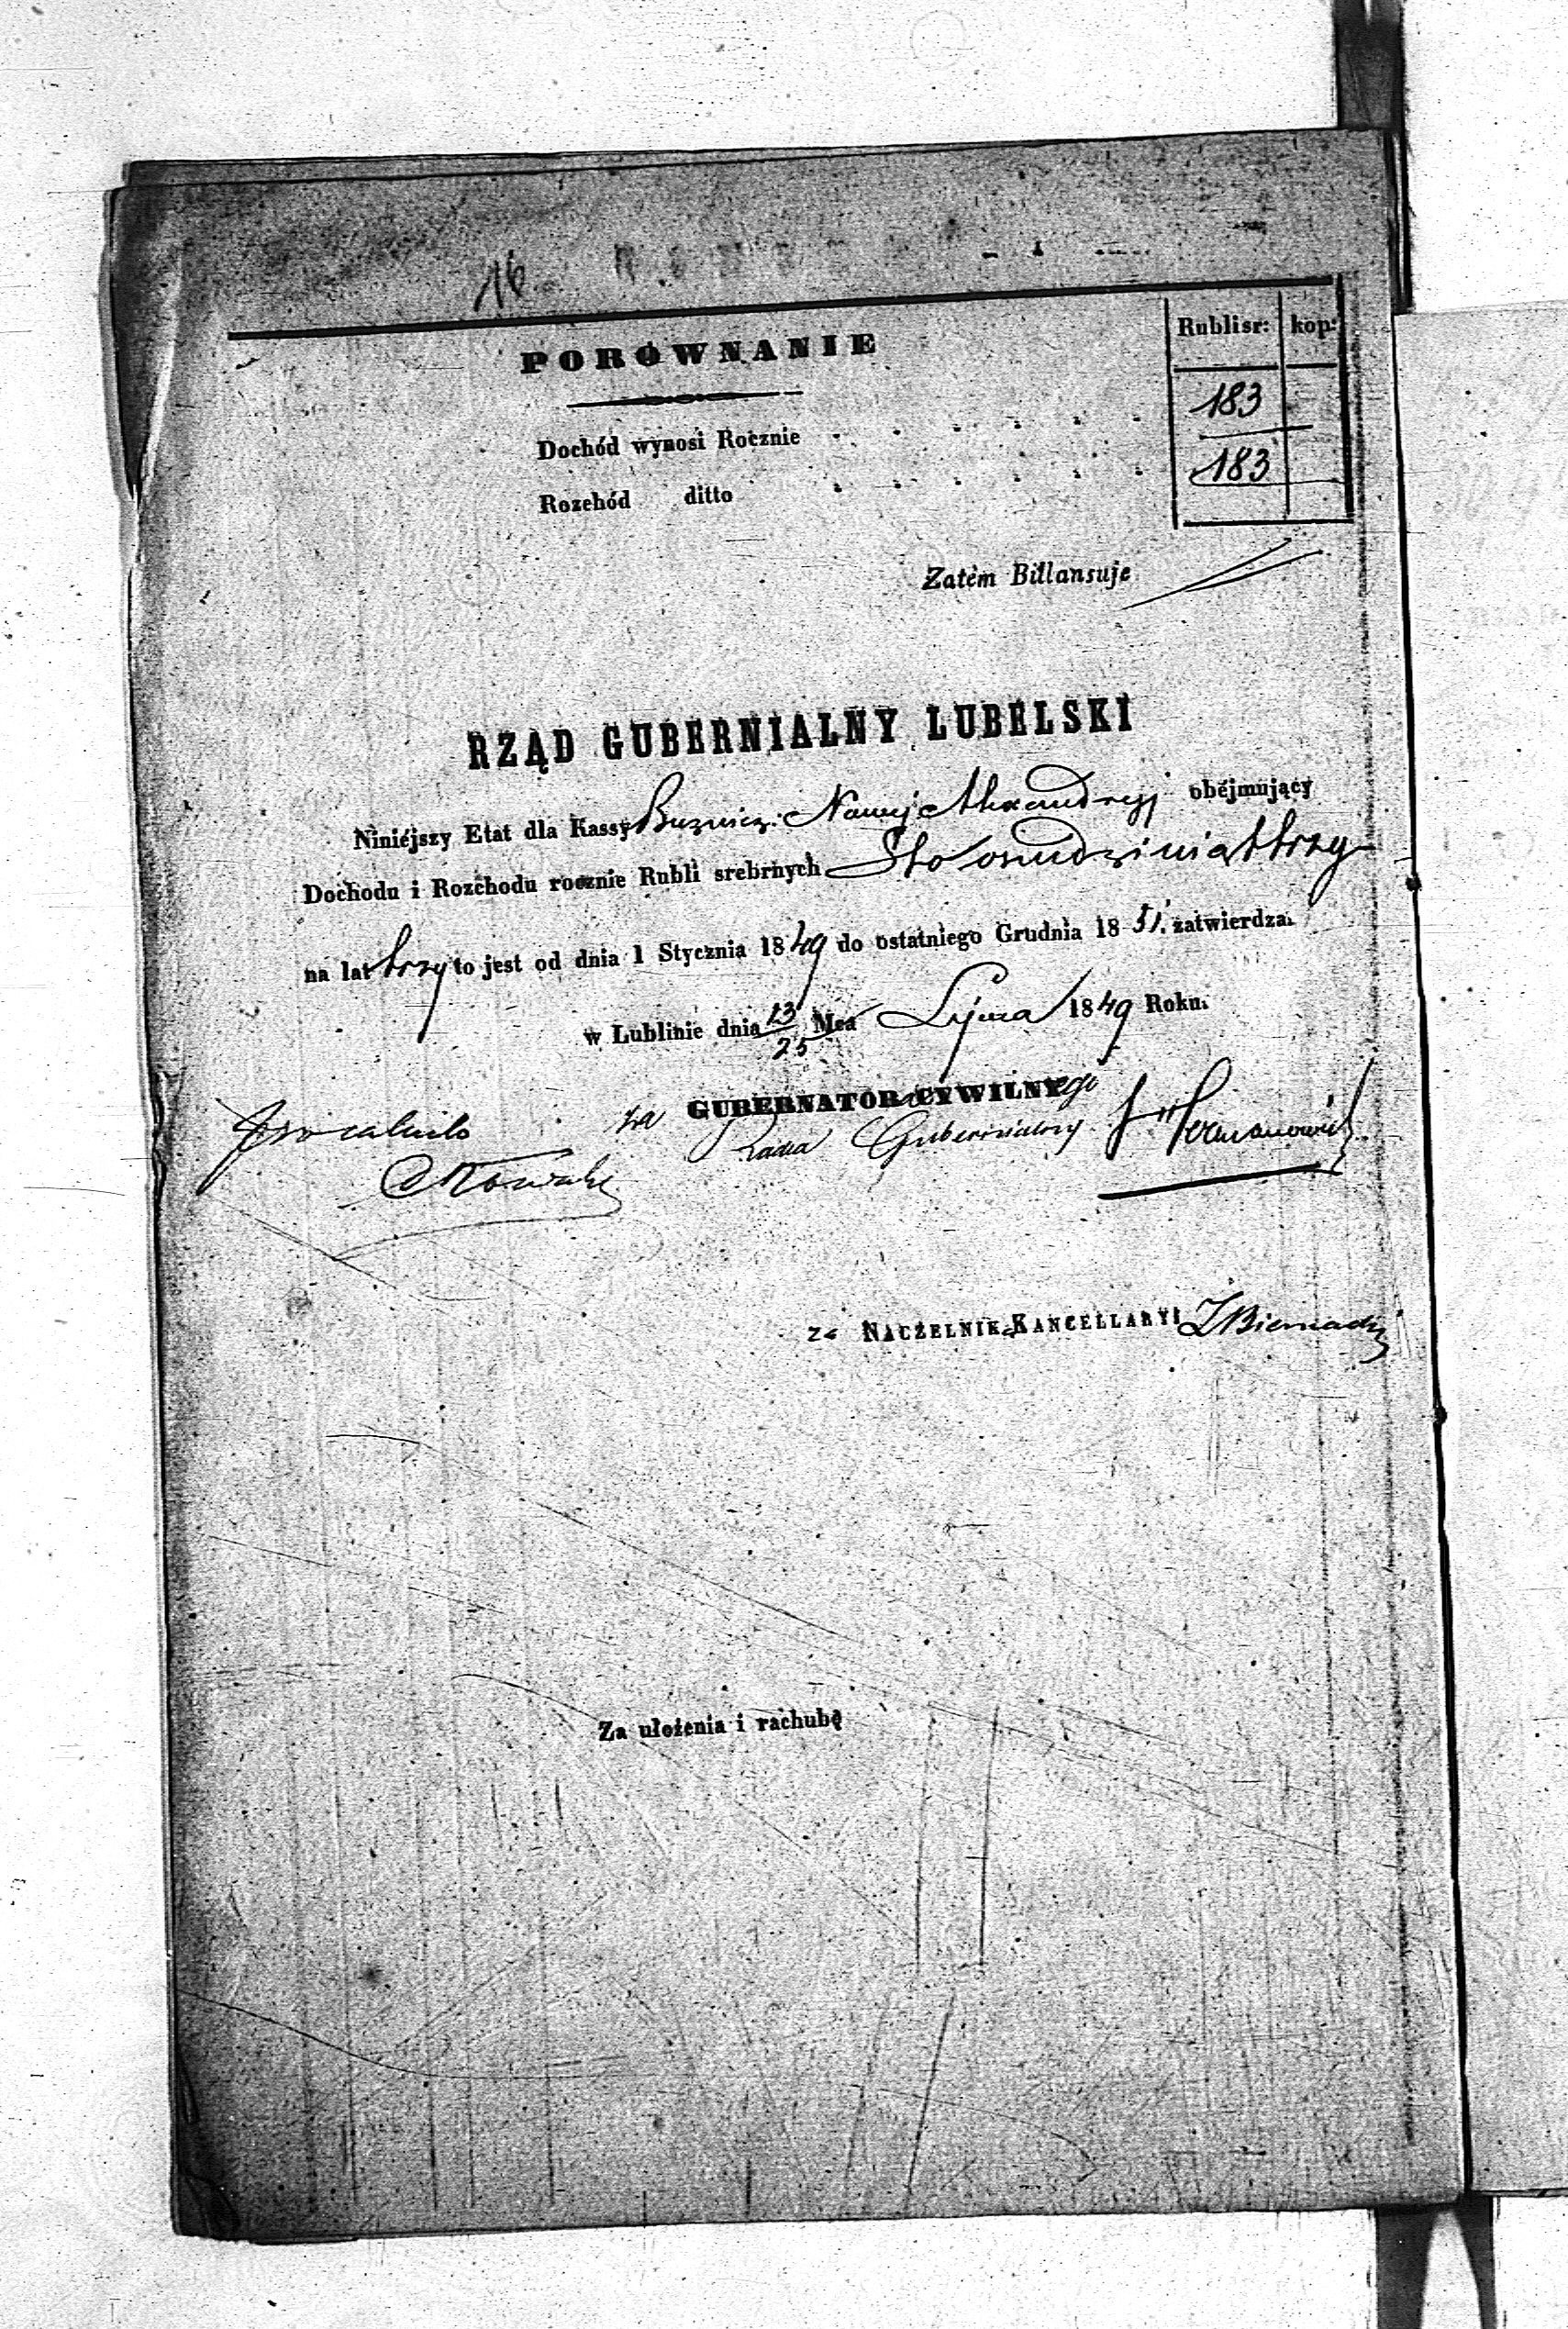 16
PORÓWNANIE
Rublisr: kop:
Dochód wynosi Rocznie 183
Rozchód ditto 183
Zatém Billansuje
RZĄD GUBERNIALNY LUBELSKI
Niniéjszy Etat dla Kassy Bużnicz: Nowej Alexandryj obéjmujący
Dochodu i Rozchodu rocznie Rubli srebrnych Sto osmdziesiąt trzy
na lat trzy to jest od dnia 1 Stycznia 1849 do ostatniego Grudnia 1851. zatwierdza.
w Lublinie dnia 13/25 Mca Lipca 1849 Roku.
za GUBERNATORA CYWILNego
Radca Gubernialny
Za NACZELNIKA KANCELLARYI
Za ułożenia i rachubę